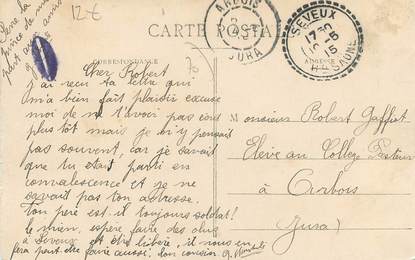 12€
CARTE POSTALE
CORRESPONDANCE
ADRESSE
ARBOIS
JURA
SEVEUX
15
Hte SAONE
70
Cher Robert
J'ai reçu ta lettre qui
m'a bien fait plaisir excuse
moi de ne t'avoir pas
plus tôt mais je n'y pensait
pas souvent, car je savait
que tu était parti en
convalescence et je ne
savait pas ton adresse.
Ton père est-il toujours soldat?
le mien, espère faire des
à Seveux et être libéré, il nous en
fera peut-être faire aussi. Ton cousin
Monsieur Robert Gaffiot
Elève au Collège Pasteur
à Arbois
Jura)